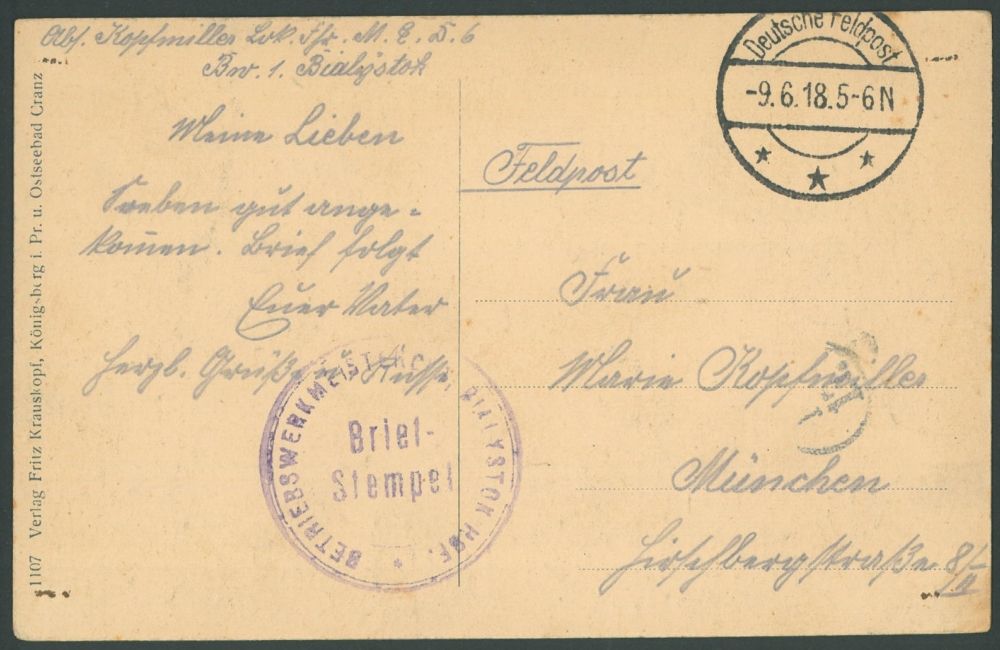 Abs. Kopfmiller Lok. Fhr. M. E. D. 6
Bw. 1. Bialystok
Meine Lieben
Soeben gut ange-
kom̄en. Brief folgt
Euer Vater
Herzl. Grüße u. Küsse
BETRIEBSWERKMEISTEREI BIALYSTOK HBF.
Brief-
Stempel
Deutsche Feldpost
-9.6.18.5-6N
Feldpost
Frau
Marie Kopfmiller
München
Hirschbergstraße 8/
1107 Verlag Fritz Krauskopf, Königsberg i. Pr. u. Ostseebad Cranz